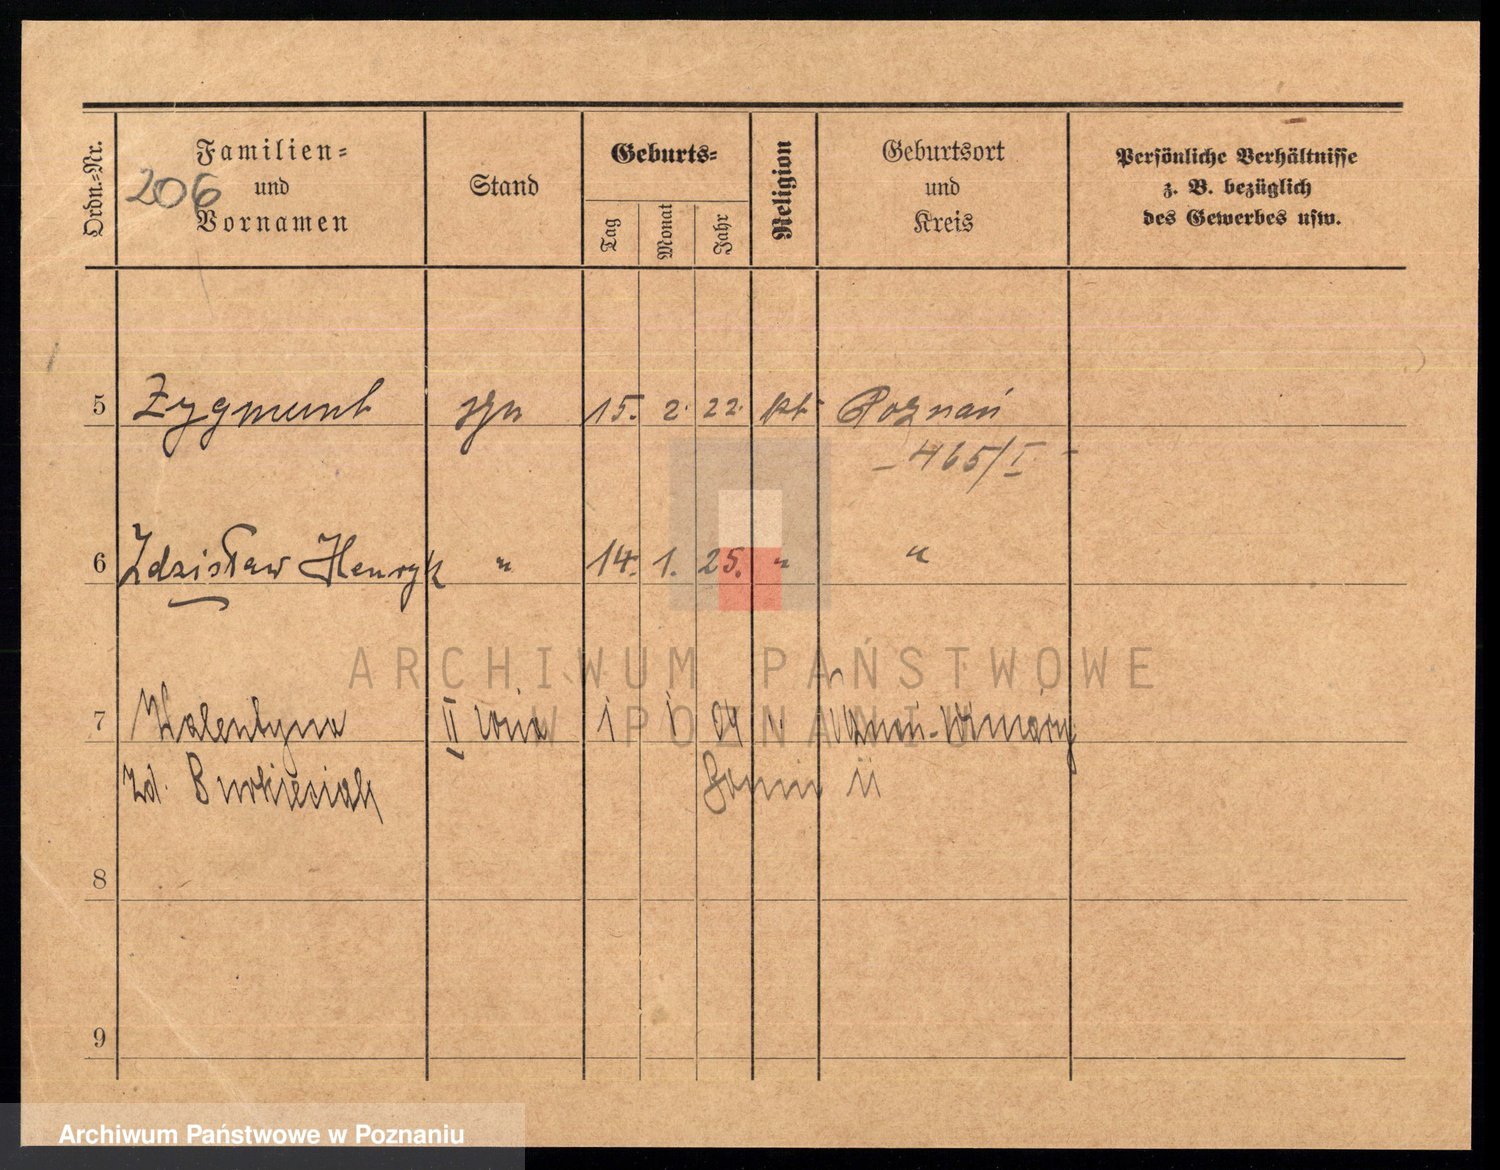 Ordn.-Nr.
Familien-
und
Vornamen
206
Stand
Geburts-
Tag
Monat
Jahr
Religion
Geburtsort
und
Kreis
Persönliche Verhältnisse
z. B. bezüglich
des Gewerbes usw.
5 Zygmunt syn 15. 2. 22. kt. Poznań
465/I
6 Zdzisław Henryk " 14. 1. 25. " "
7 Walentyna II 1 1 04
zd.
8
9
ARCHIWUM PAŃSTWOWE
W POZNANIU
Archiwum Państwowe w Poznaniu